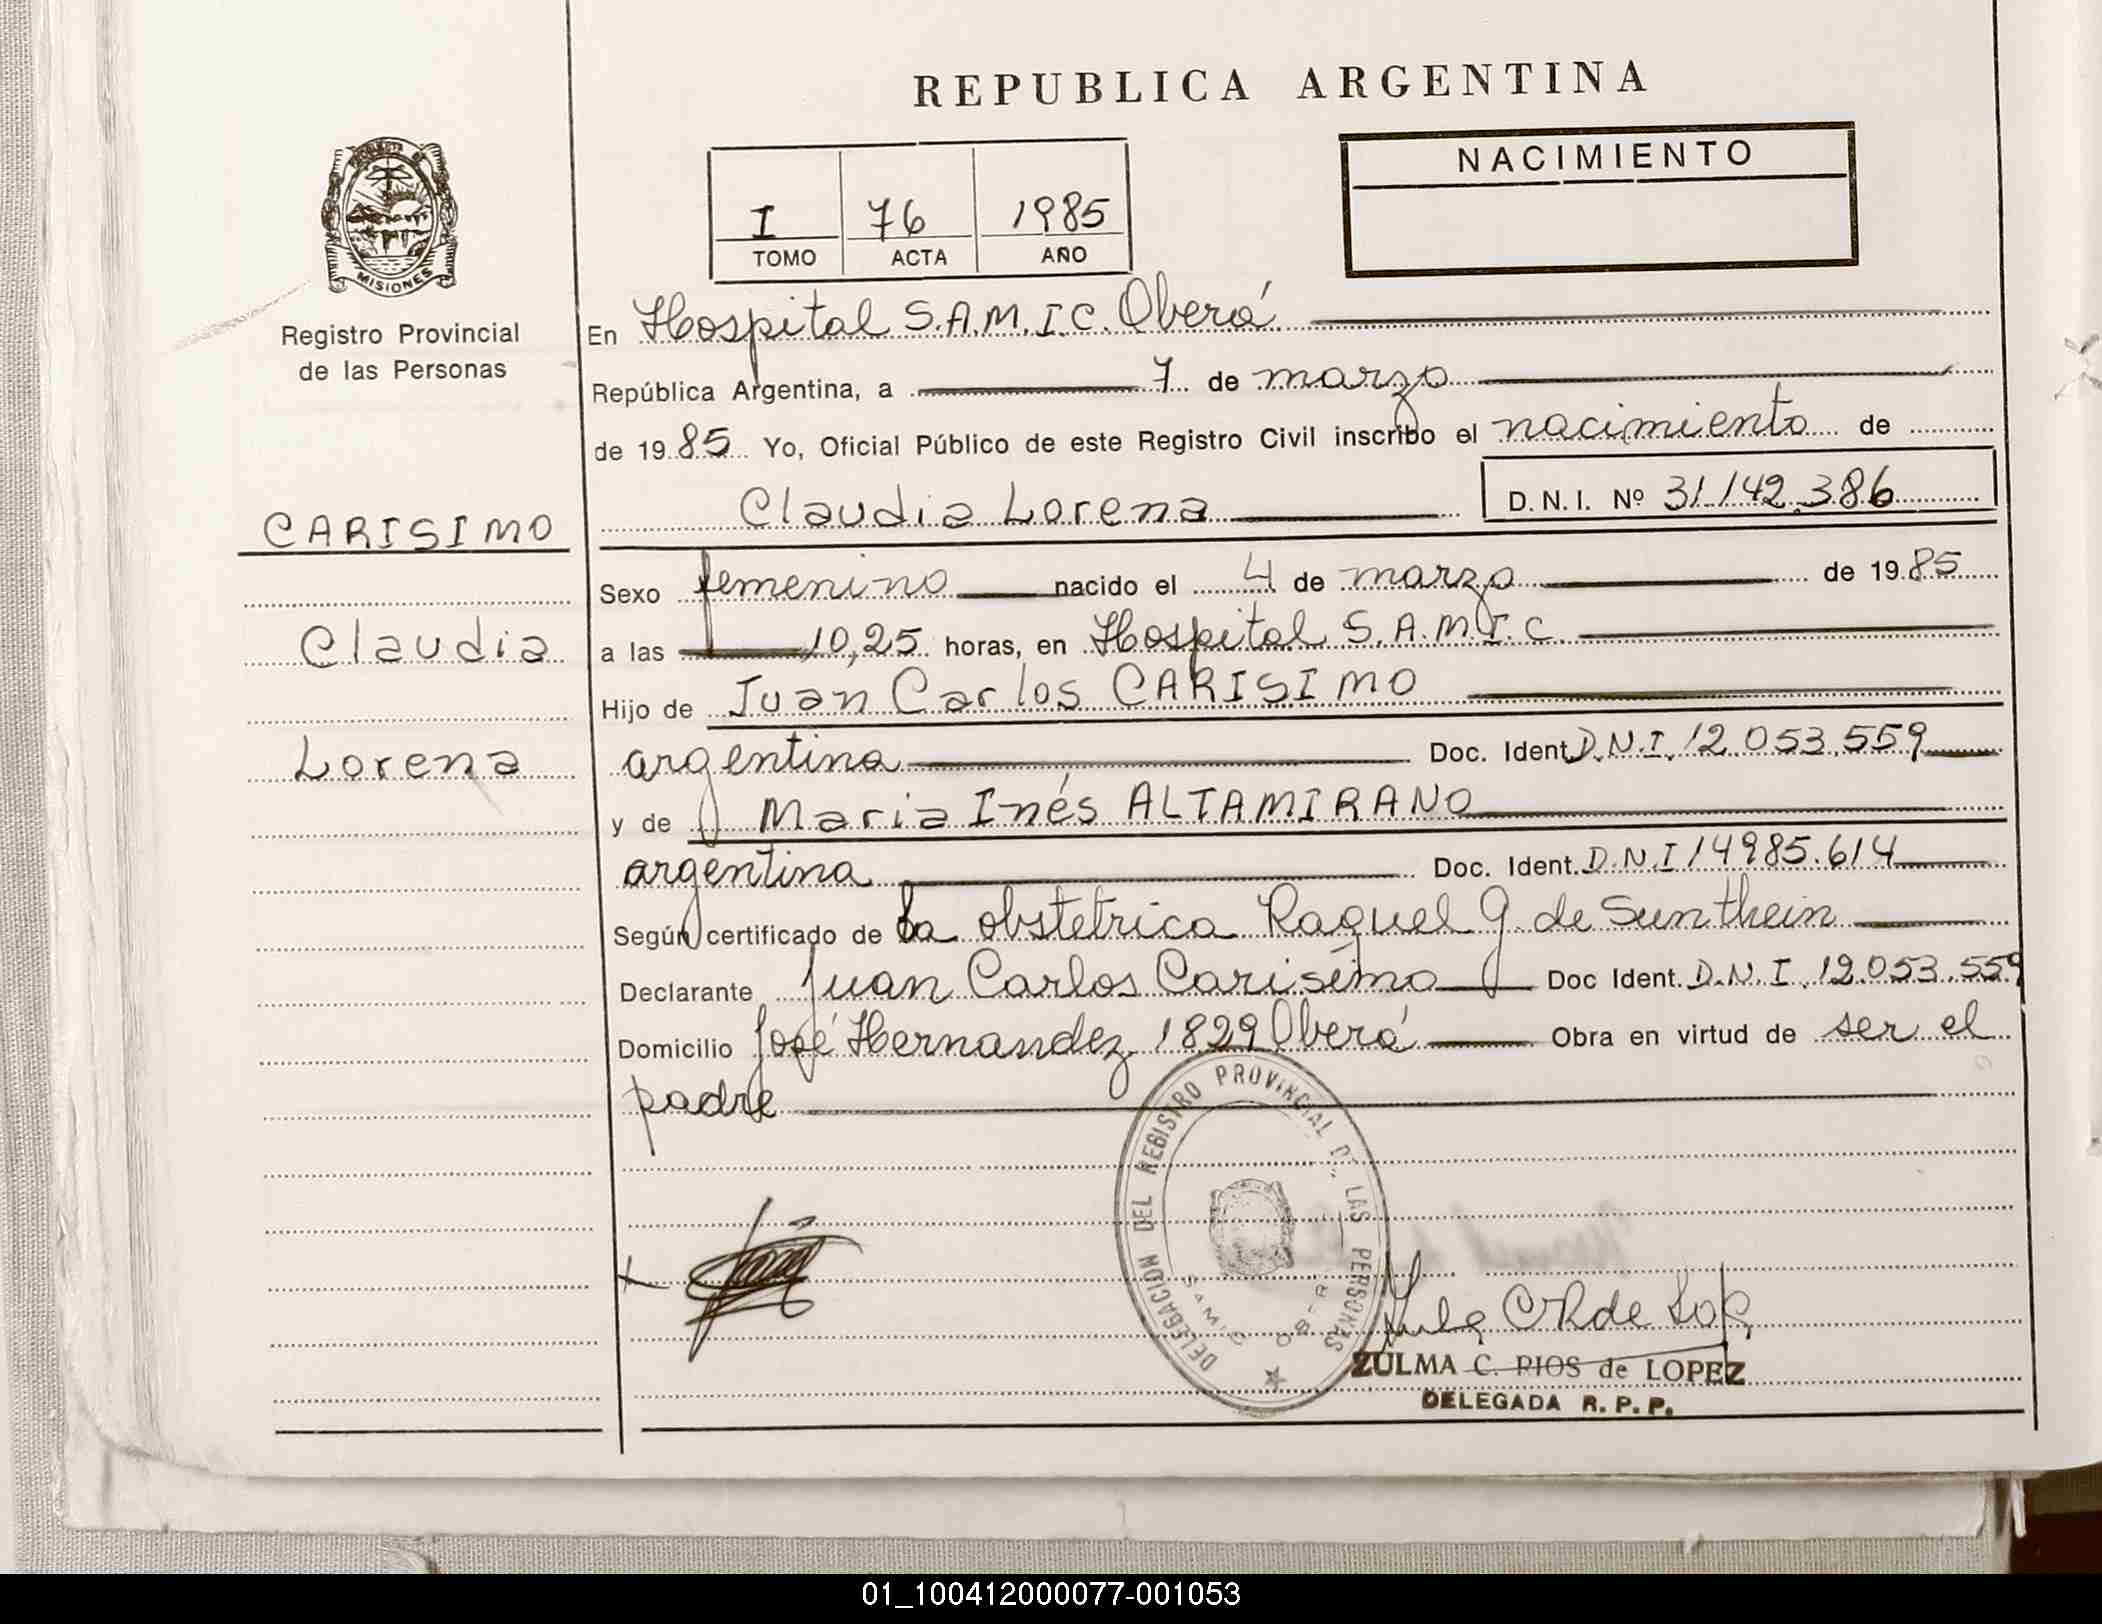 REPUBLICA ARGENTINA
NACIMIENTO
I 76 1985
TOMO ACTA AÑO
MISIONES
Registro Provincial
de las Personas
CARISIMO
Claudia
Lorena
En Hospital S.A.M.I.C. Oberá
República Argentina, a 7 de marzo
de 1985 Yo, Oficial Público de este Registro Civil inscribo el nacimiento de
Claudia Lorena D.N.I. Nº 31.142.386
Sexo femenino nacido el 4 de marzo de 1985
a las 10,25 horas, en Hospital S.A.M.I.C
Hijo de Juan Carlos CARISIMO
argentina Doc. Ident. D.N.I. 12.053.559
y de Maria Inés ALTAMIRANO
argentina Doc. Ident. D.N.I 14985.614
Según certificado de la obstetrica Raquel G. de Sunthein
Declarante Juan Carlos Carisimo Doc Ident. D.N.I. 12.053.559
Domicilio José Hernandez 1829 Oberá Obra en virtud de ser el
padre
DELEGACION DEL REGISTRO PROVINCIAL DE LAS PERSONAS
ZULMA C. RIOS de LOPEZ
DELEGADA R.P.P.
01_100412000077-001053